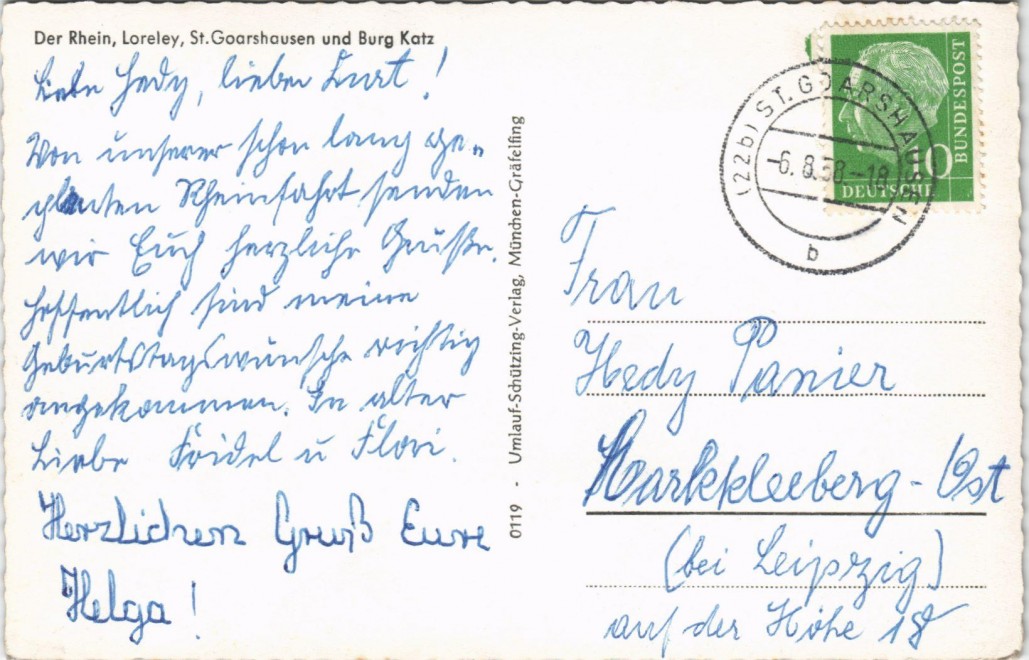 Der Rhein, Loreley, St. Goarshausen und Burg Katz
Liebe Hedy, lieber Kurt!
Von unserer schon lang ge-
planten Rheinfahrt senden
wir Euch herzliche Grüße.
Hoffentlich sind meine
Geburtstagswünsche richtig
angekommen. In alter
Liebe Friedel u Flori.
Herzlichen Gruß Eure
Helga!
0119 - Umlauf-Schützing-Verlag, München-Gräfelfing
(22b) ST. GOARSHAUSEN
-6.8.58-18
b
10
DEUTSCHE
BUNDESPOST
Frau
Hedy Panier
Markkleeberg-Ost
(bei Leipzig)
auf der Höhe 18